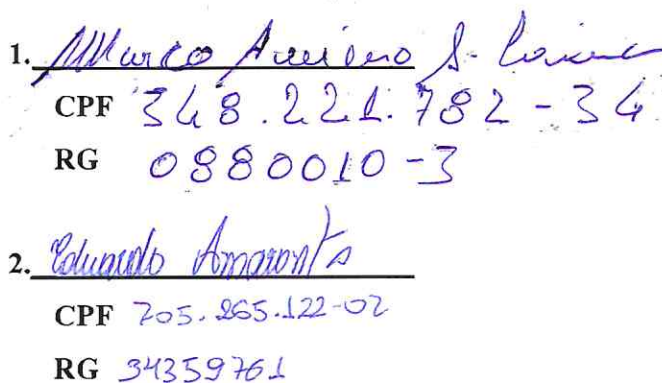 1. Marco Aurelio S.
CPF 348.221.782-34
RG 0880010-3
2. Eduardo Amarante
CPF 705.265.122-02
RG 34359761